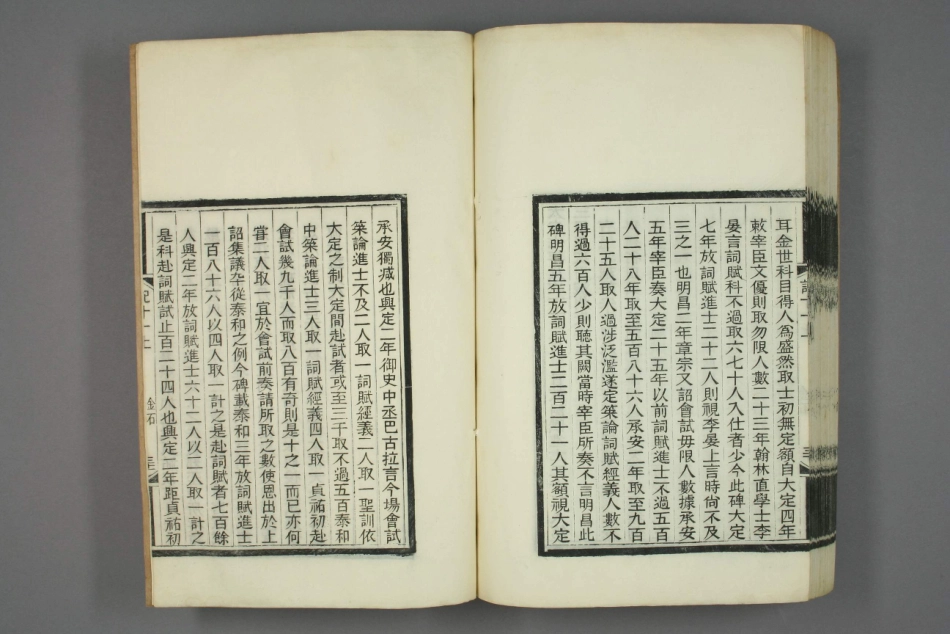 耳金世科目得人爲盛然取士初無定額自大定四年
敕宰臣文優則取勿限人數二十三年翰林直學士李
晏言詞賦科不過取六七十人入仕者少今此碑大定
七年放詞賦進士二十二人則視李晏上言時尙不及
三之一也明昌二年章宗又詔會試毋限人數據承安
五年宰臣奏大定二十五年以前詞賦進士不過五百
人二十八年取至五百八十六人承安二年取至九百
二十五人取人過涉泛濫遂定策論詞賦經義人數不
得過六百人少則聽其闕當時宰臣所奏不言明昌此
碑明昌五年放詞賦進士二百二十一人其額視大定
承安獨減也興定二年御史中丞巴古拉言今場會試
策論進士不及二人取一詞賦經義二人取一聖訓依
大定之制大定間赴試者或至三千取不過五百泰和
中策論進士三人取一詞賦經義四人取一貞祐初赴
會試幾九千人而取八百有奇則是十之一而已亦何
嘗二人取一宜於會試前奏請所取之數使恩出於上
詔集議卒從泰和之例今碑載泰和三年放詞賦進士
一百八十六人以四人取一計之是赴詞賦者七百餘
人興定二年放詞賦進士六十二人以二人取一計之
是科赴詞賦試止百二十四人也興定二年距貞祐初
金石